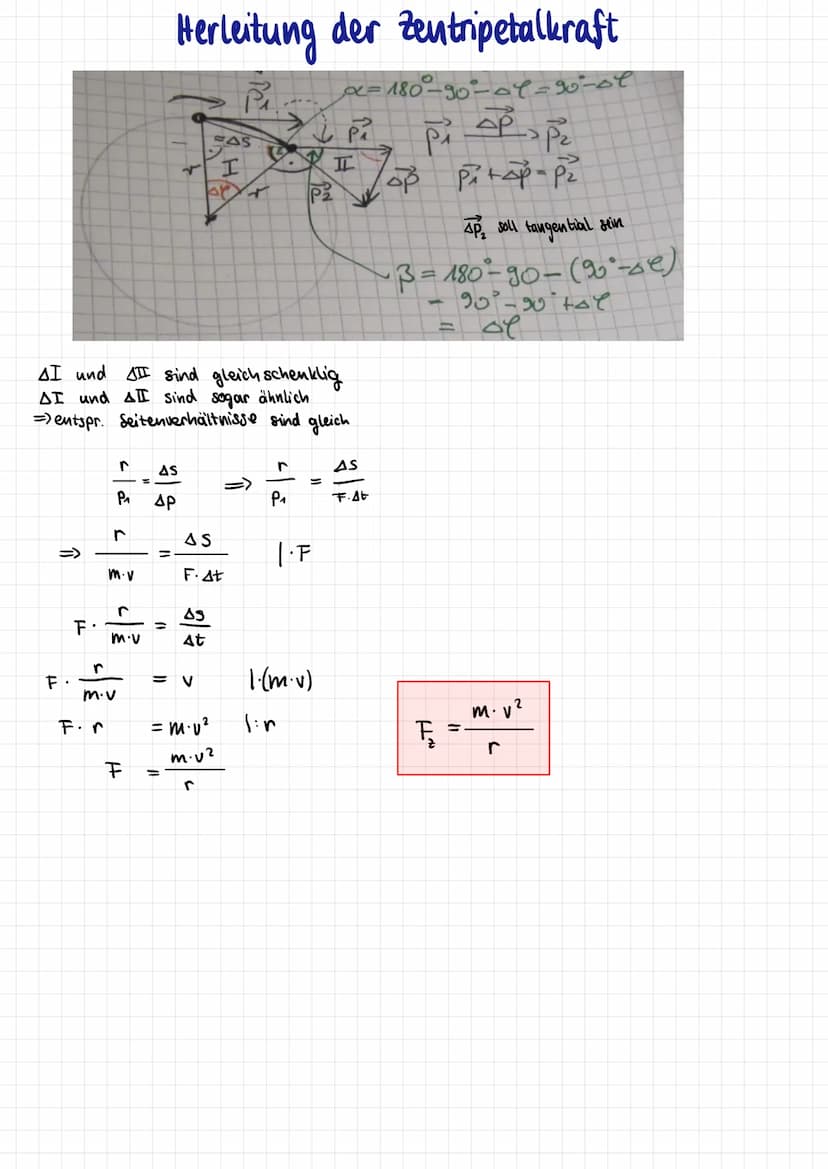 Herleitung der Zentripetalkraft
α = 180° - 90° - Δφ = 90° - Δφ
p₁
= Δs
p₁
p₁ Δp → p₂
r I II
Δp
p₁ + Δp = p₂
Δφ r
p₂
Δp₂ soll tangential sein
β = 180° - 90 - (90° - Δφ)
= 90° - 90° + Δφ
= Δφ
ΔI und ΔII sind gleichschenklig
ΔI und ΔII sind sogar ähnlich
⇒ entspr. Seitenverhältnisse sind gleich
r/p₁ = Δs/Δp ⇒ r/p₁ = Δs/F·Δt
⇒ r/m·v = Δs/F·Δt |·F
F · r/m·v = Δs/Δt
F · r/m·v = v |·(m·v)
F · r = m·v² |:r
F = m·v²/r
F_z = m·v²/r